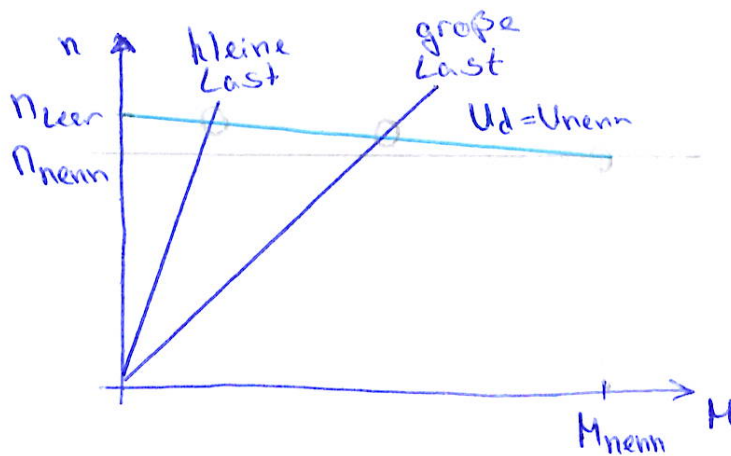 n
kleine
Last
große
Last
n_Leer
U_d = U_nenn
n_nenn
M
M_nenn